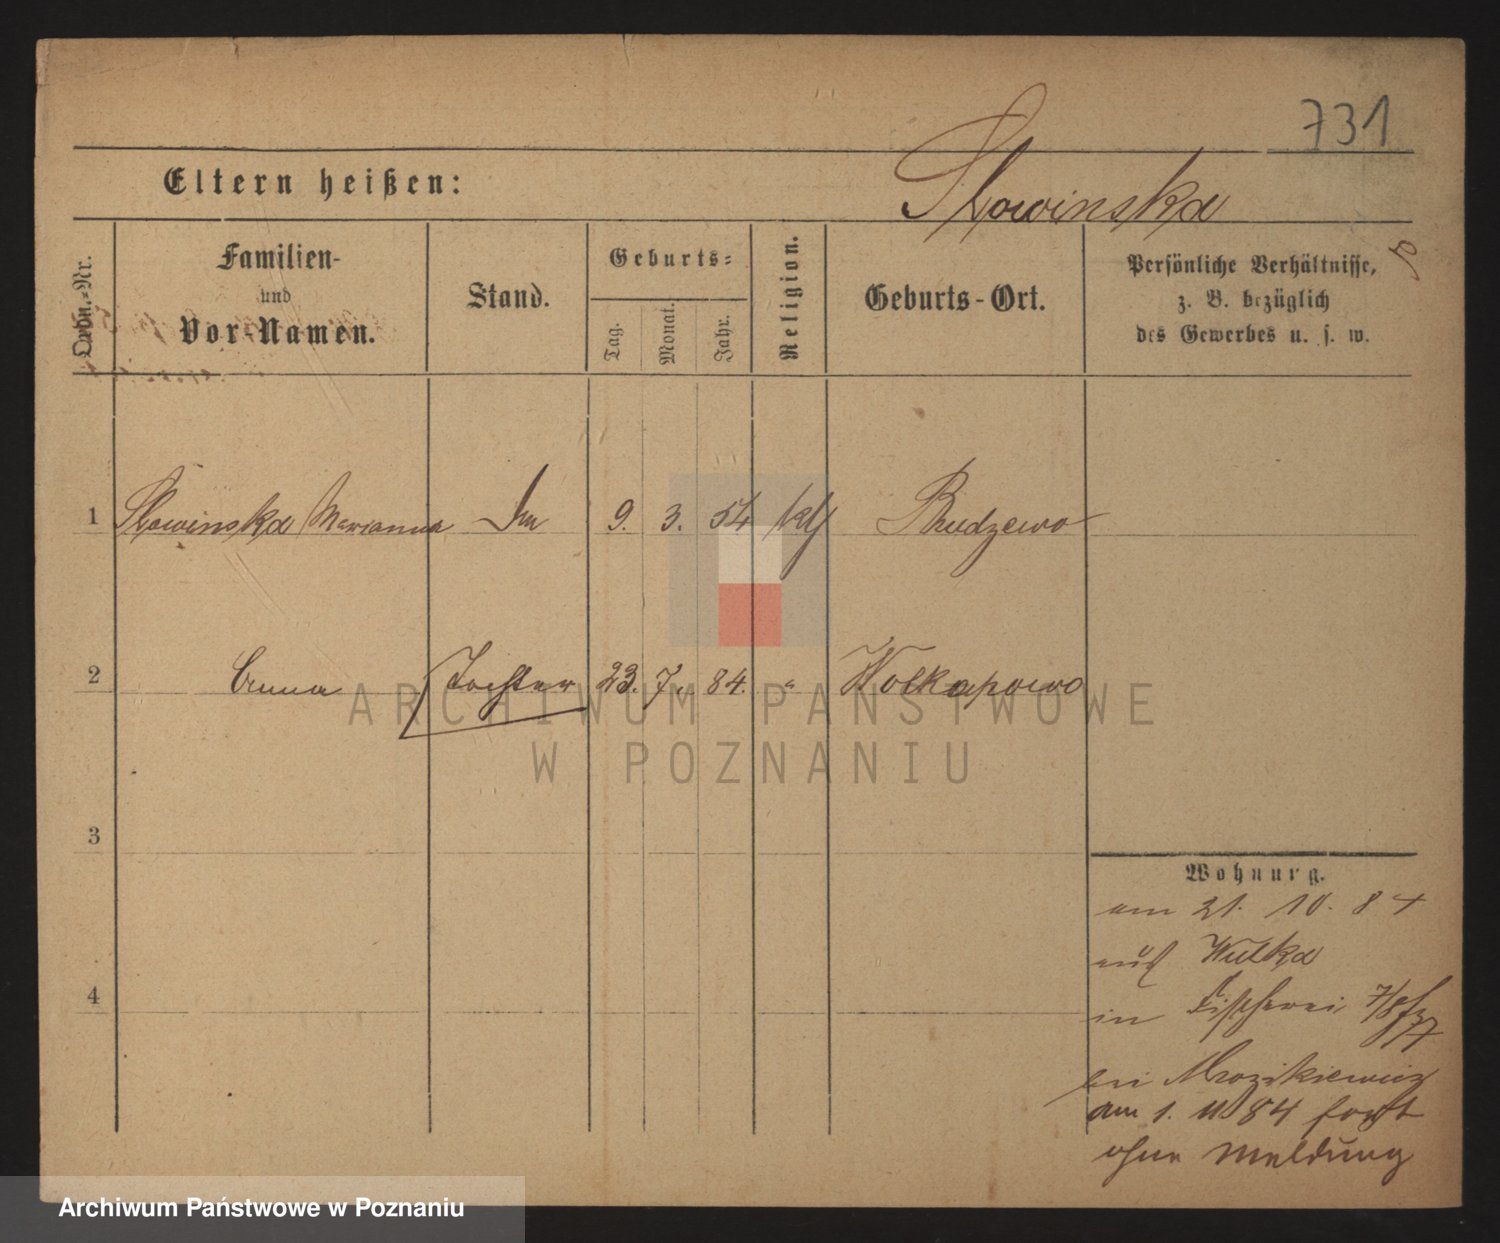 731
Eltern heißen:
Slowinska
Ordn.-Nr.
Familien-
und
Vor-Namen.
Stand.
Geburts-
Tag.
Monat.
Jahr.
Religion.
Geburts-Ort.
Persönliche Verhältnisse,
z. B. bezüglich
des Gewerbes u. s. w.
1 Slowinska Marianna 9. 3. 54 ktl
2 Anna Tochter 23. 7. 84. "
3
4
Wohnung.
am 21. 10. 84
auf Wulka
in Fischerei
bei Mrozikiewicz
am 1. 11 84 fort
ohne Meldung
ARCHIWUM PAŃSTWOWE
W POZNANIU
Archiwum Państwowe w Poznaniu